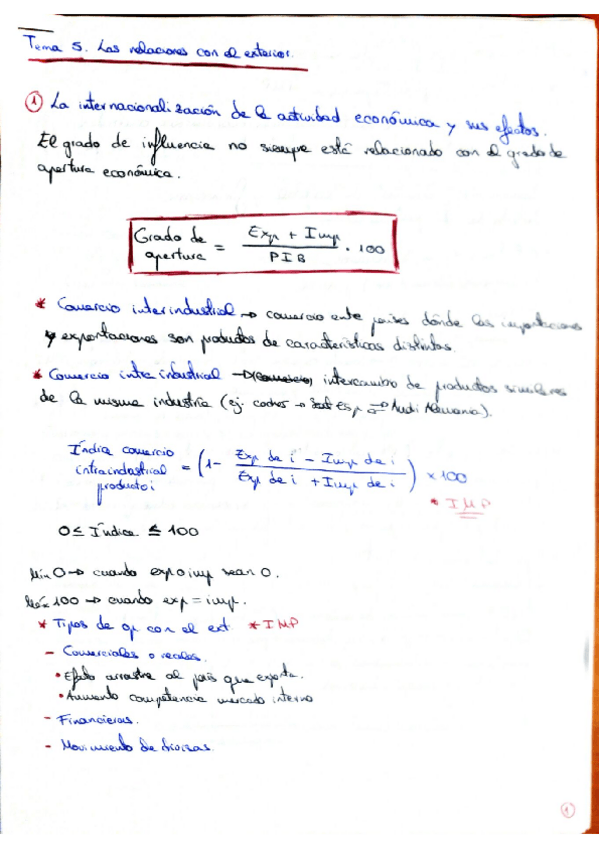 Tema 5. Las relaciones con el exterior.
① La internacionalización de la actividad económica y sus efectos.
El grado de influencia no siempre está relacionado con el grado de
apertura económica.
Grado de apertura = (Exp + Imp / PIB) · 100
* Comercio interindustrial → comercio ente países dónde las importaciones
y exportaciones son productos de características distintas.
* Comercio intraindustrial → intercambio de productos similares
de la misma industria (ej: coches → Seat Esp ⇄ Audi Alemania).
Índice comercio intraindustrial producto i = (1 - Exp de i - Imp de i / Exp de i + Imp de i) × 100
* IMP
0 ≤ Índice ≤ 100
Mín 0 → cuando exp o imp sean 0.
Máx 100 → cuando exp = imp.
* Tipos de op con el ext. * IMP
- Comerciales o reales.
• Efecto arrastre al país que exporta.
• Aumento competencia mercado interno
- Financieras.
- Movimiento de divisas.
1